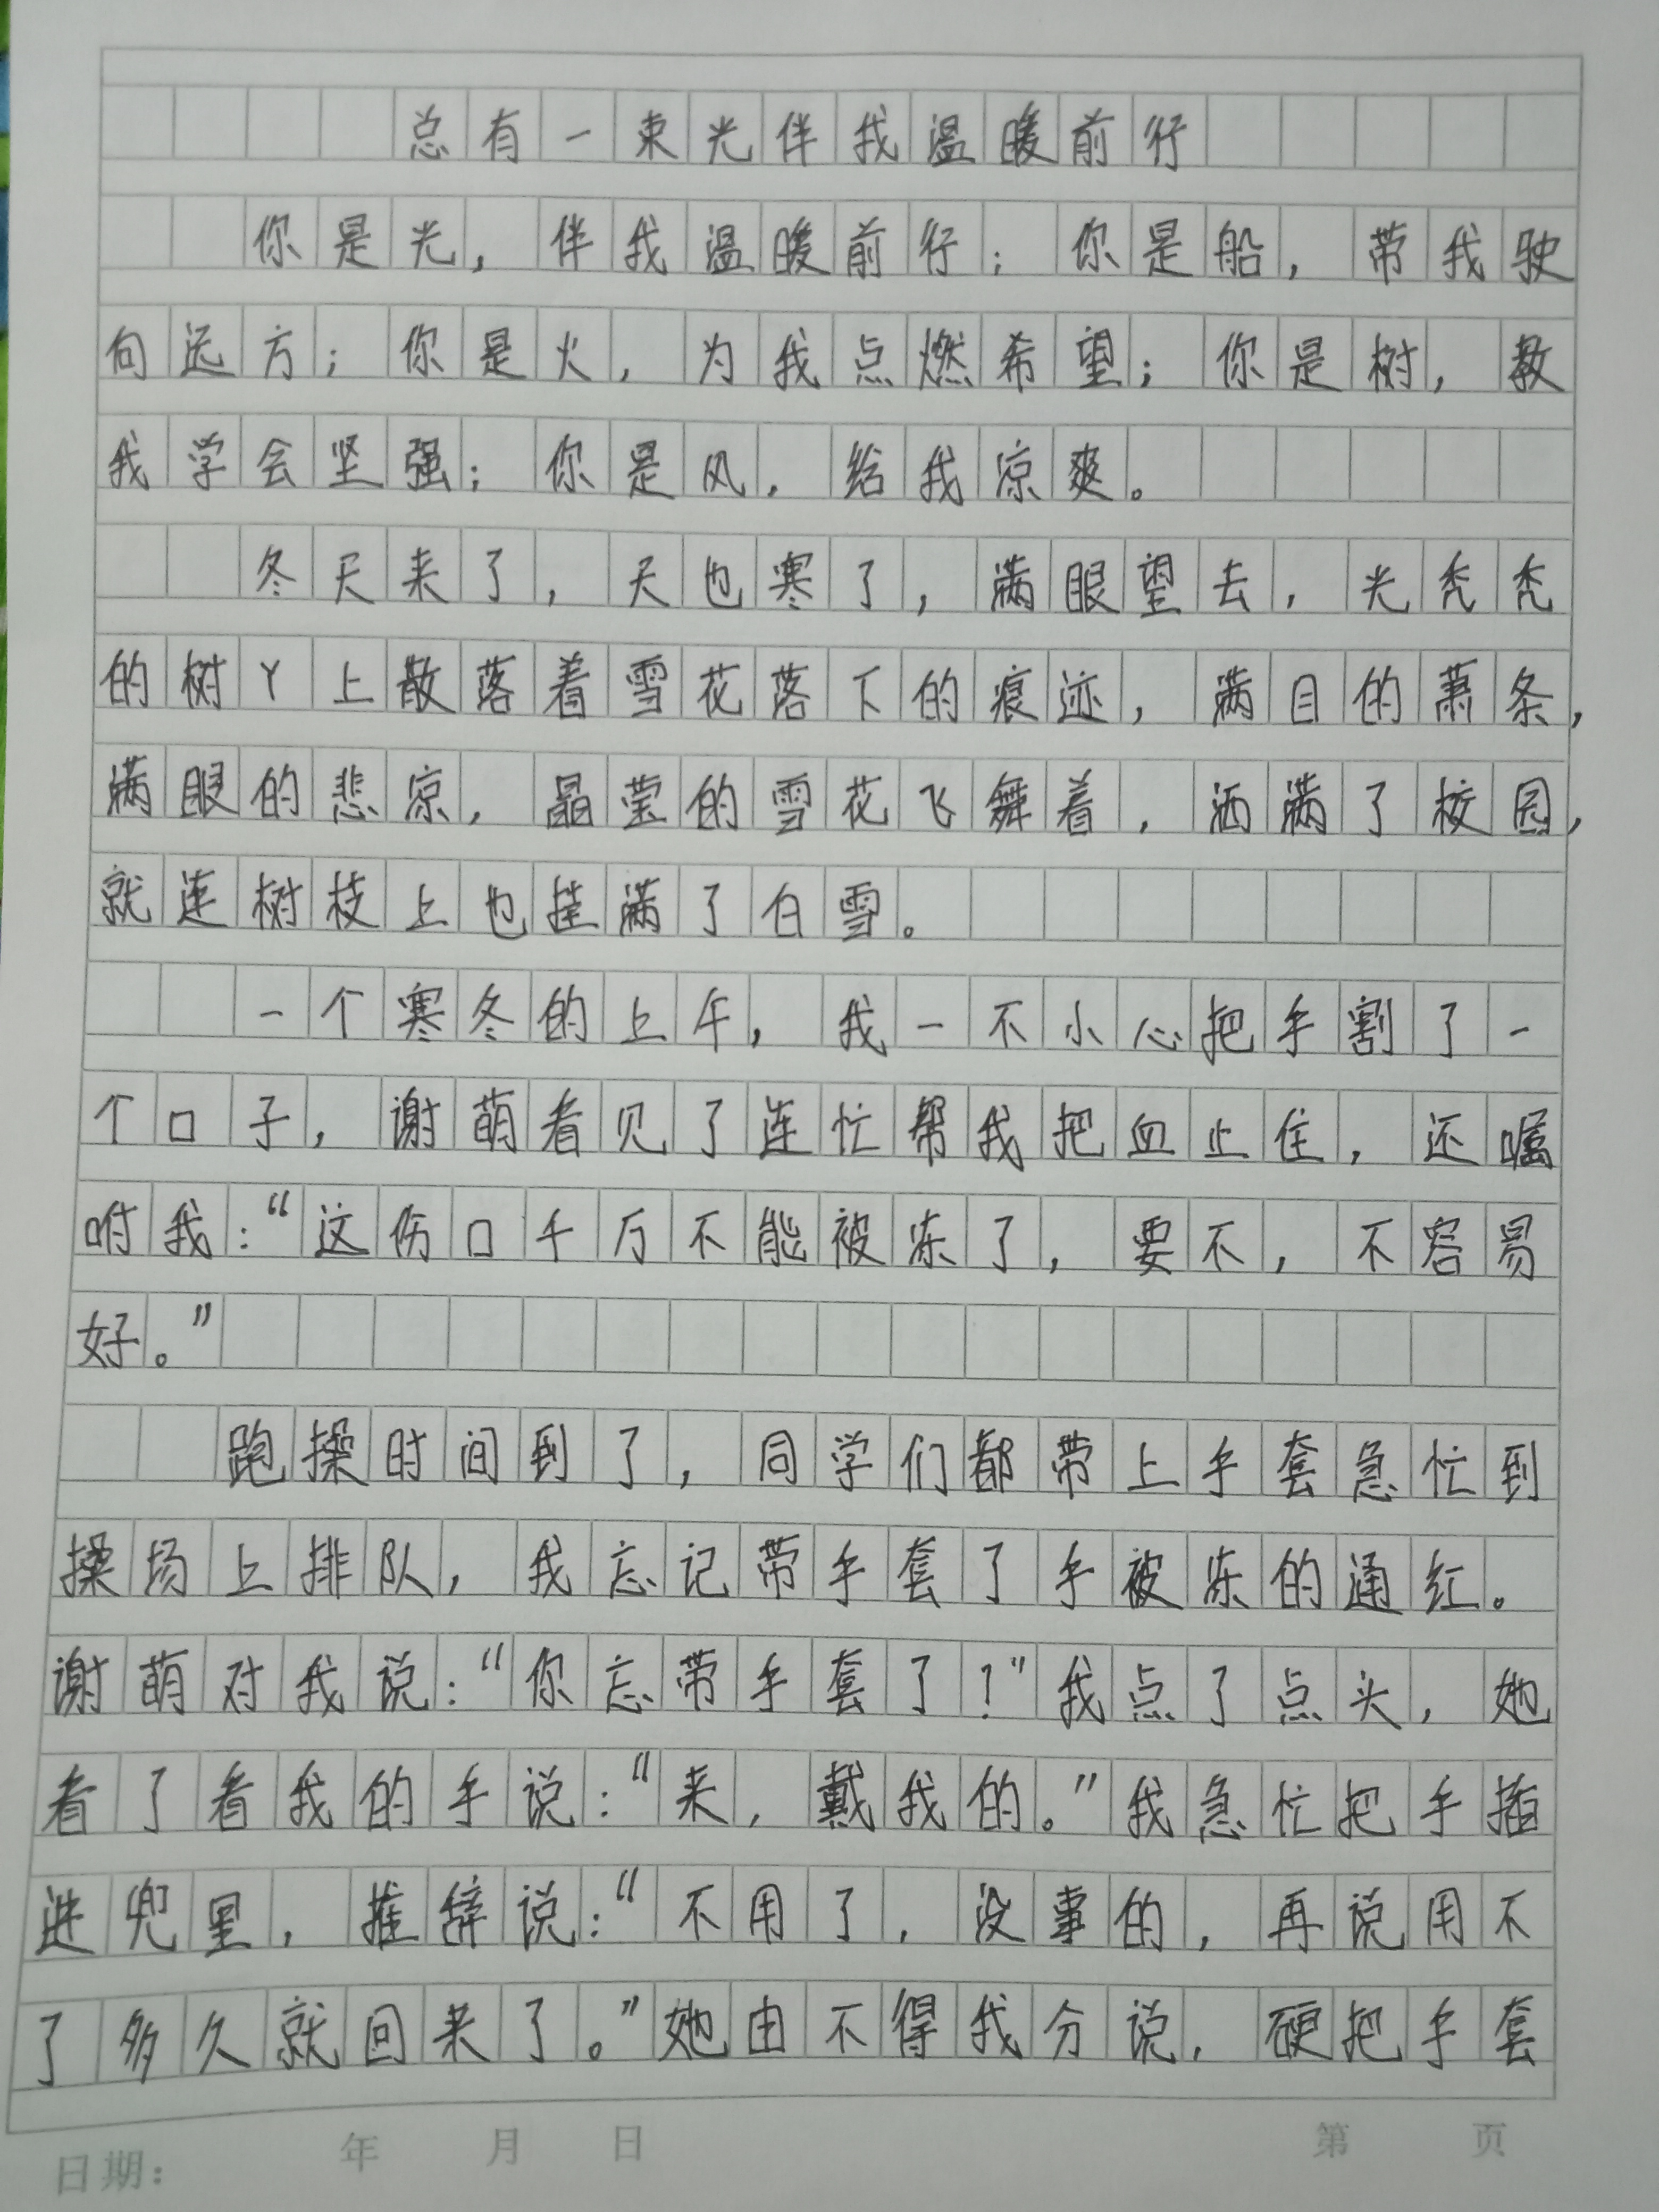 总有一束光伴我温暖前行
你是光，伴我温暖前行；你是船，带我驶
向远方；你是火，为我点燃希望；你是树，教
我学会坚强；你是风，给我凉爽。
冬天来了，天也寒了，满眼望去，光秃秃
的树丫上散落着雪花落下的痕迹，满目的萧条，
满眼的悲凉，晶莹的雪花飞舞着，洒满了校园，
就连树枝上也挂满了白雪。
一个寒冬的上午，我一不小心把手割了一
个口子，谢萌看见了连忙帮我把血止住，还嘱
咐我：“这伤口千万不能被冻了，要不，不容易
好。”
跑操时间到了，同学们都带上手套急忙到
操场上排队，我忘记带手套了手被冻的通红。
谢萌对我说：“你忘带手套了！”我点了点头，她
看了看我的手说：“来，戴我的。”我急忙把手插
进兜里，推辞说：“不用了，没事的，再说用不
了多久就回来了。”她由不得我分说，硬把手套
日期： 年 月 日 第 页